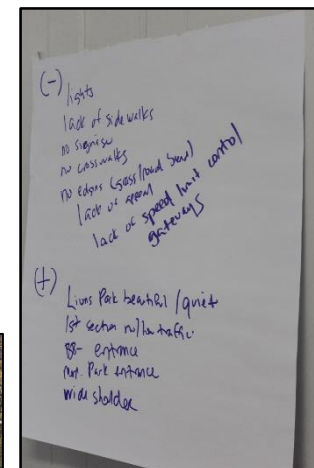 (-) lights
lack of sidewalks
no signage
no crosswalks
no edges (grass/road
lack of
lack of speed limit control
gateways
(+)
Lions Park beautiful/quiet
1st section no/low traffic
88- entrance
Park entrance
wide sholder